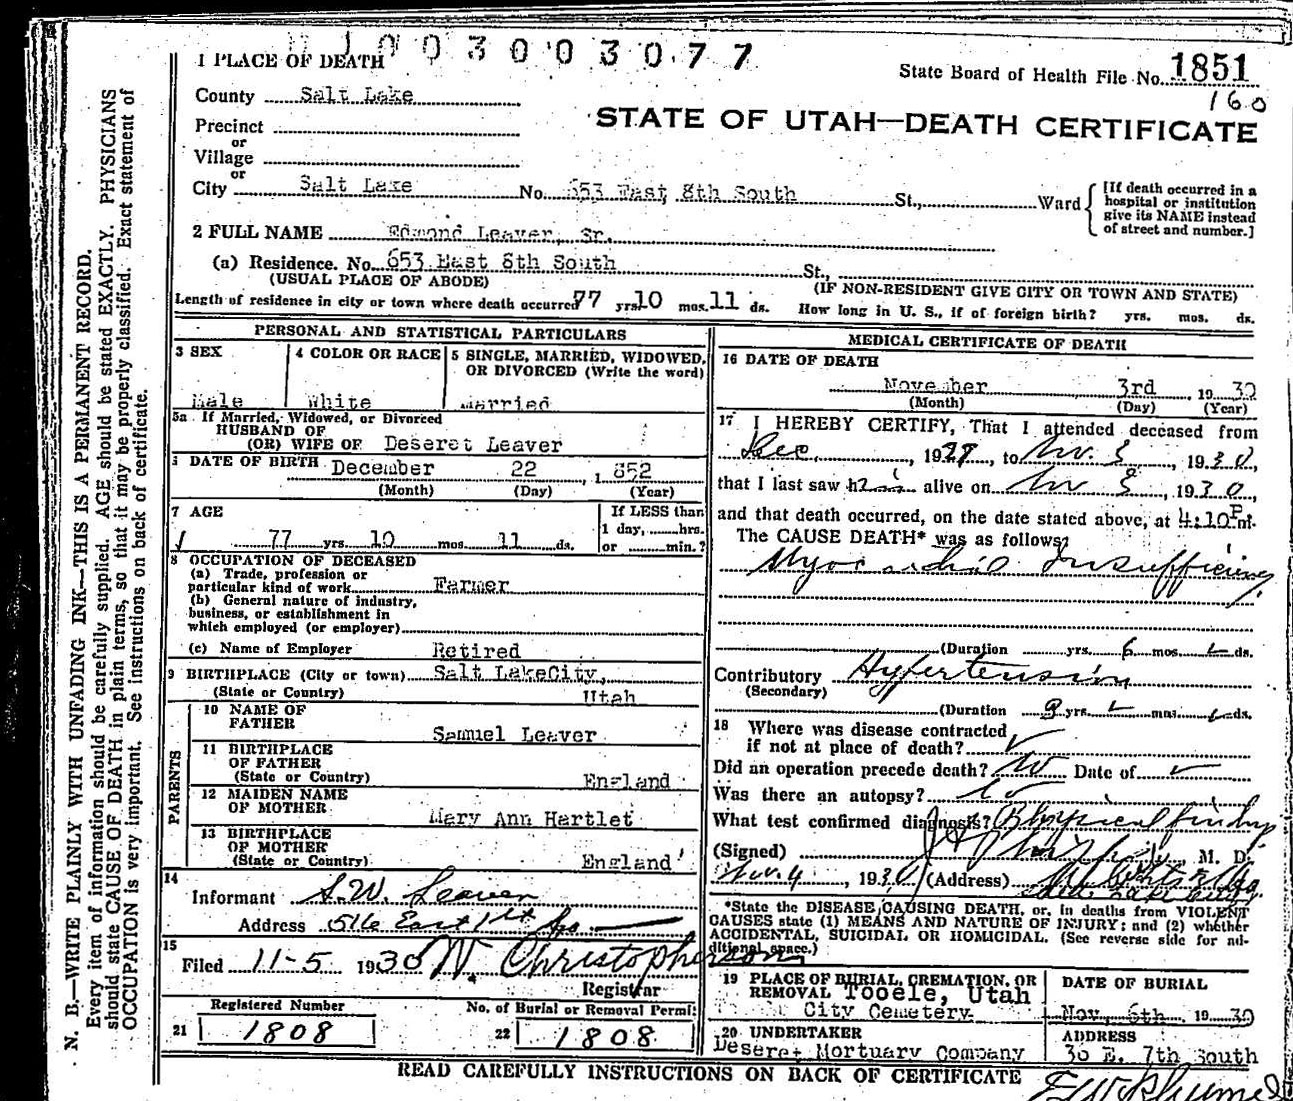 0 0 3 0 0 3 0 7 7
1 PLACE OF DEATH
State Board of Health File No. 1851
160
County Salt Lake
STATE OF UTAH—DEATH CERTIFICATE
Precinct
or
Village
or
City Salt Lake No. 653 East 8th South St., Ward
[If death occurred in a
hospital or institution
give its NAME instead
of street and number.]
2 FULL NAME Edmond Leaver, Sr.
(a) Residence. No. 653 East 8th South St.,
(USUAL PLACE OF ABODE) (IF NON-RESIDENT GIVE CITY OR TOWN AND STATE)
Length of residence in city or town where death occurred 77 yrs. 10 mos. 11 ds. How long in U. S., if of foreign birth? yrs. mos. ds.
PERSONAL AND STATISTICAL PARTICULARS
3 SEX
Male
4 COLOR OR RACE
White
5 SINGLE, MARRIED, WIDOWED,
OR DIVORCED (Write the word)
Married
5a If Married, Widowed, or Divorced
HUSBAND OF
(OR) WIFE OF Deseret Leaver
DATE OF BIRTH December 22, 1852
(Month) (Day) (Year)
7 AGE
77 yrs. 10 mos. 11 ds.
If LESS than
1 day, hrs.
or min.?
8 OCCUPATION OF DECEASED
(a) Trade, profession or
particular kind of work Farmer
(b) General nature of industry,
business, or establishment in
which employed (or employer)
(c) Name of Employer Retired
9 BIRTHPLACE (City or town) Salt LakeCity,
(State or Country) Utah
PARENTS
10 NAME OF
FATHER Samuel Leaver
11 BIRTHPLACE
OF FATHER
(State or Country) England
12 MAIDEN NAME
OF MOTHER Mary Ann Hartlet
13 BIRTHPLACE
OF MOTHER
(State or Country) England
14
Informant S.W. Leaver
Address 516 East 1st So.
15
Filed 11-5 1930 W. Christopherson
Registrar
Registered Number
21 1808
No. of Burial or Removal Permit
22 1808
MEDICAL CERTIFICATE OF DEATH
16 DATE OF DEATH
November 3rd 1930
(Month) (Day) (Year)
17 I HEREBY CERTIFY, That I attended deceased from
Dec., 1927, to Nov. 3, 1930,
that I last saw him alive on Nov 3, 1930,
and that death occurred, on the date stated above, at 4:10 P m.
The CAUSE DEATH* was as follows:
Myocardial Insufficiency
(Duration yrs. 6 mos. ds.
Contributory Hypertension
(Secondary)
(Duration yrs. mos. ds.
18 Where was disease contracted
if not at place of death?
Did an operation precede death? No Date of
Was there an autopsy? No
What test confirmed diagnosis? Physical findings
(Signed) M. D.
Nov. 4, 1930 (Address)
*State the DISEASE CAUSING DEATH, or, in deaths from VIOLENT
CAUSES state (1) MEANS AND NATURE OF INJURY; and (2) whether
ACCIDENTAL, SUICIDAL OR HOMICIDAL. (See reverse side for ad-
ditional space.)
19 PLACE OF BURIAL, CREMATION, OR
REMOVAL Tooele, Utah
City Cemetery.
DATE OF BURIAL
Nov. 6th 1930
20 UNDERTAKER
Deseret Mortuary Company
ADDRESS
36 E. 7th South
READ CAREFULLY INSTRUCTIONS ON BACK OF CERTIFICATE
N. B.—WRITE PLAINLY WITH UNFADING INK—THIS IS A PERMANENT RECORD.
Every item of information should be carefully supplied. AGE should be stated EXACTLY. PHYSICIANS
should state CAUSE OF DEATH in plain terms, so that it may be properly classified. Exact statement of
OCCUPATION is very important. See instructions on back of certificate.